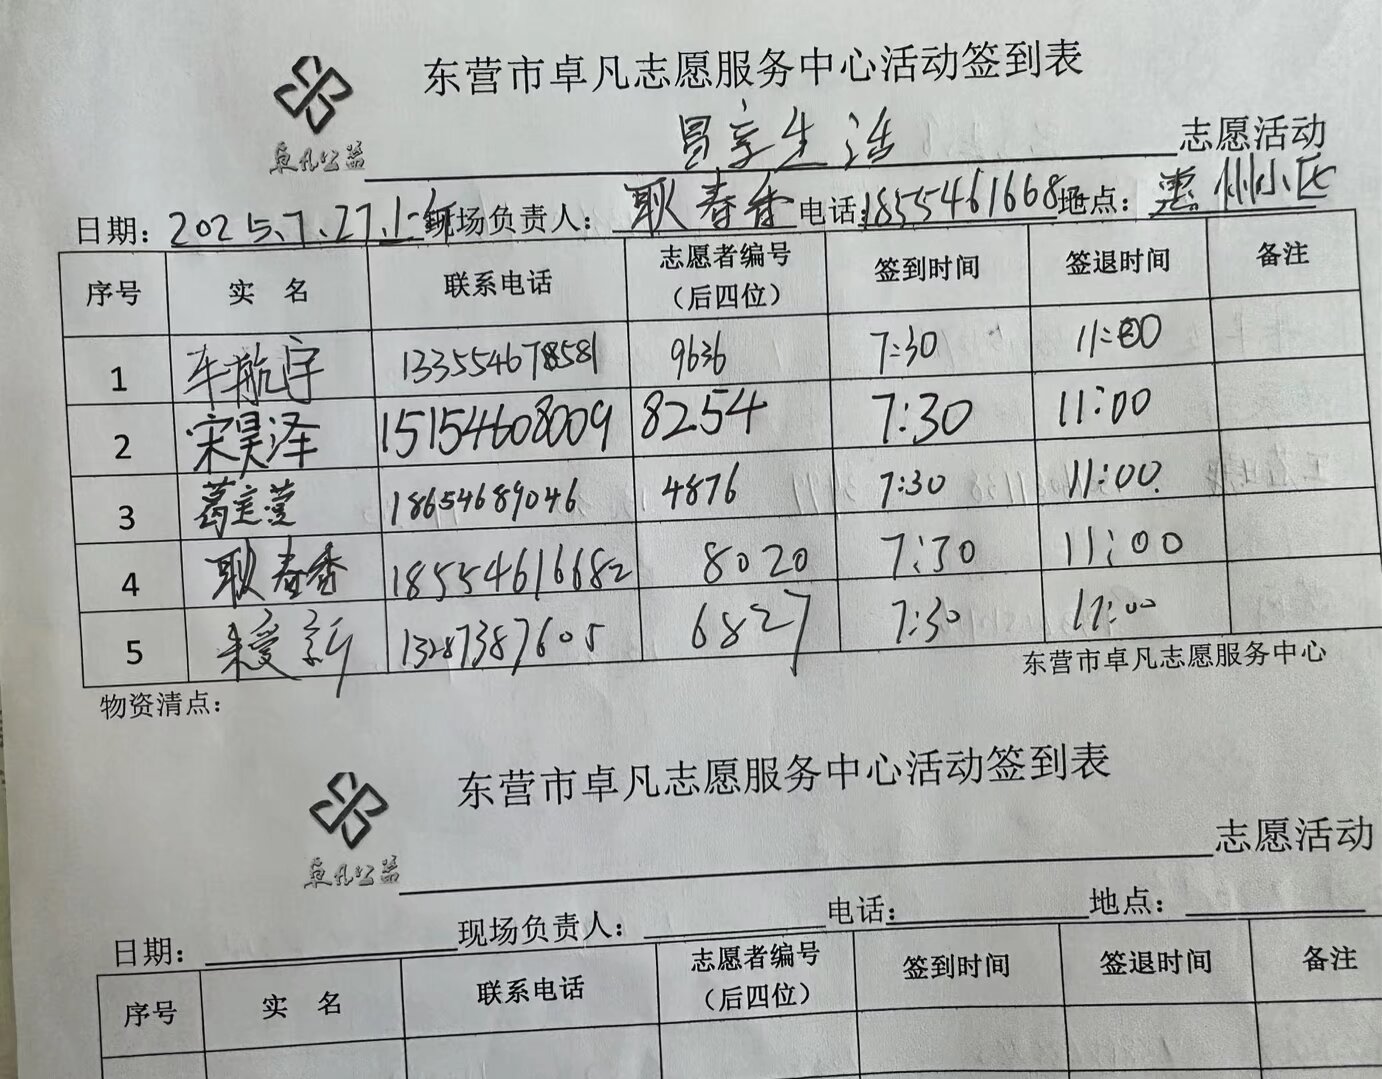 东营市卓凡志愿服务中心活动签到表
卓凡公益
享生活 志愿活动
日期：2025.7.27.上午 现场负责人：耿春香 电话：1855461668 地点：惠州小区
序号 实 名 联系电话 志愿者编号（后四位） 签到时间 签退时间 备注
1 车航宇 9636 7:30 11:00
2 宋昊泽 15154608009 8254 7:30 11:00
3 葛 蔓 18654689046 4876 7:30 11:00
4 耿春香 18554616682 8020 7:30 11:00
5 新 13287387605 6827 7:30 11:00
东营市卓凡志愿服务中心
物资清点：
东营市卓凡志愿服务中心活动签到表
卓凡公益
志愿活动
日期： 现场负责人： 电话： 地点：
序号 实 名 联系电话 志愿者编号（后四位） 签到时间 签退时间 备注